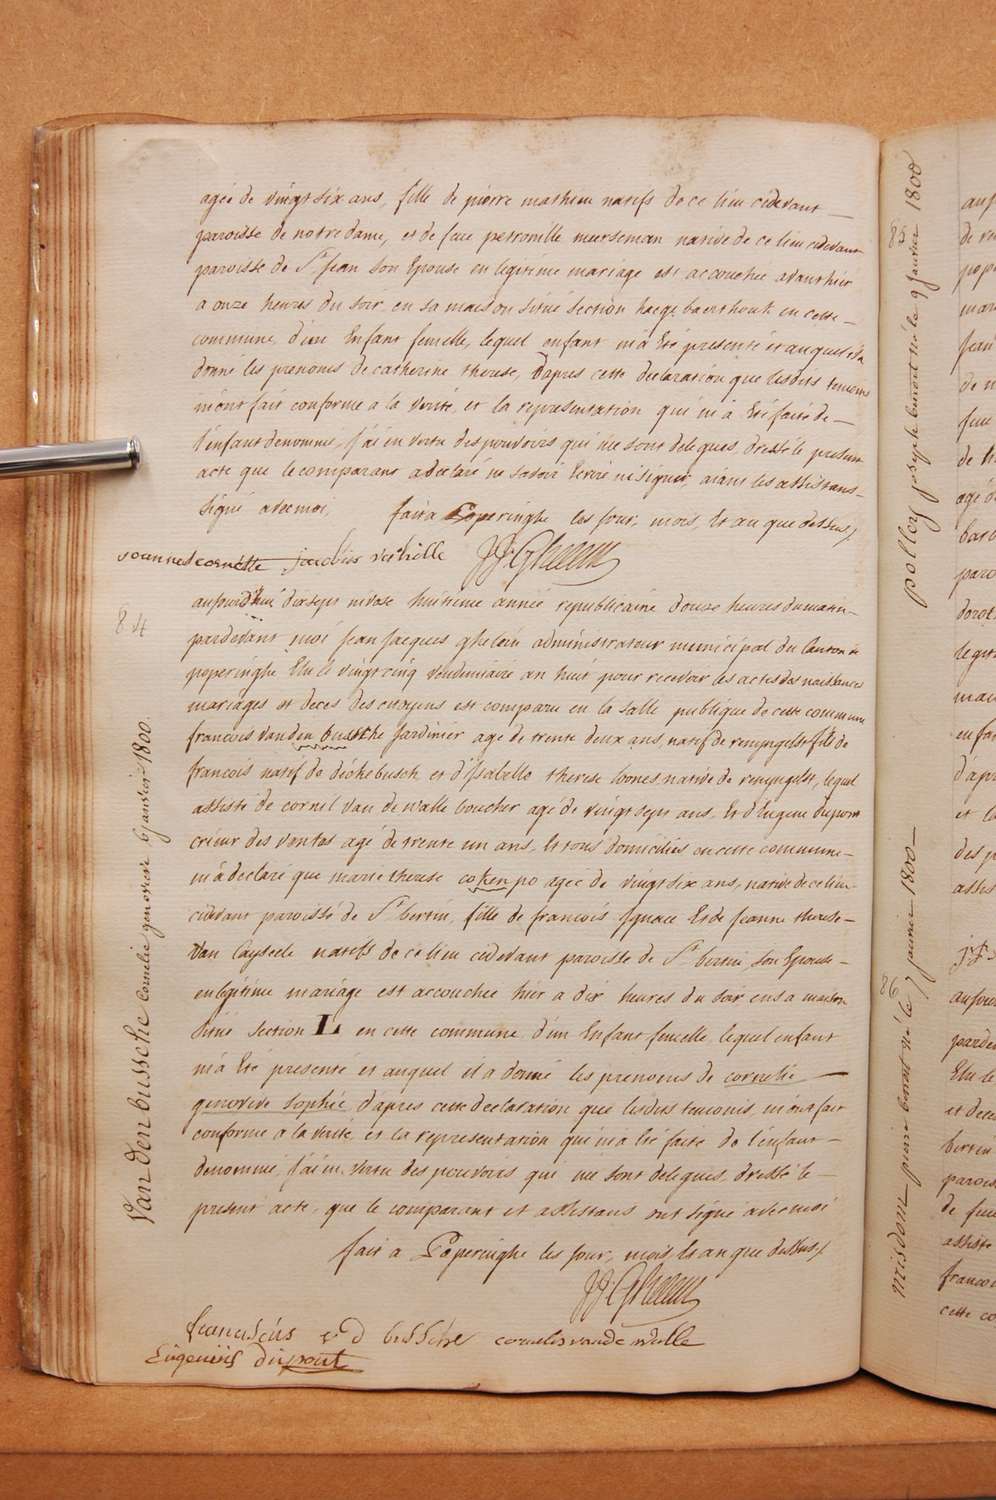 agée de vingt six ans, fille de pierre mathieu natifs de ce lieu cidevant
paroisse de notre dame, et de feue petronille meerseman native de ce lieu cidevant
paroisse de St jean son Epouse en legitime mariage est accouchée avanthier
a onze heures du soir en sa maison située section haege baerthoutk en cette
commune, d'un Enfant femelle, lequel enfant m'a Eté presenté et auquel il a
donné les prenoms de catherine therese, d'apres cette declaration que lesdits temoins
m'ont fait conforme a la verité, et la representation qui m'a Eté faite de
l'enfant denommé, j'ai en vertu des pouvoirs qui me sont delegués, dressé le present
acte que le comparant a declaré ne savoir Ecrire ni signer, aiant les assistans
signé avec moi, fait a Poperinghe les jour, mois, et an que dessus
joannes cornette jacobus verhille JJ. Ghelein
84
aujourd'huï dixsept nivose huitieme année republicaine douze heures du matin
pardevant moi Jean Jacques ghelein administrateur municipal du Canton de
poperinghe Elu le vingt cinq vendemiaire an huit pour recevoir les actes des naissances
mariages et deces des citoyens est comparu en la salle publique de cette commune
francois vanden bussche Jardinier age de trente deux ans, natif de renyngelst fils de
francois natif de dickebusch et d'Isabelle therese loones native de renyngelst, lequel
assisté de cornil van de walle boucher agé de vingt sept ans, et d'Eugene dupont
crieur des ventes agé de trente un ans, Et tous domiciliés en cette commune
m'a declaré que marie therese cokenpo agee de vingt six ans, native de ce lieu
cidevant paroisse de St bertin, fille de francois Ignace Et de Jeanne therese
Van Cayseele natifs de ce lieu cidevant paroisse de St bertin son Epouse
en legitime mariage est accouchée hier a dix heures du soir en sa maison
située section L en cette commune d'un Enfant femelle, lequel enfant
m'a Eté presenté et auquel il a donné les prenoms de cornelie
genovive sophie, d'apres cette declaration que lesdits temoins m'ont fait
conforme a la verité, et la representation qui m'a Eté faite de l'enfant
denommé, j'ai en vertu des pouvoirs qui me sont delegués, dressé le
present acte, que le comparant et assistans ont signé avec moi
fait a Poperinghe les jour, mois, et an que dessus
JJ. Ghelein
franciscus v d bussche cornelis vande walle
Eugenius dupont
Van den bussche Cornelie genovive 6 janvier 1800.
85
polley joseph benoit né le 9 janvier 1800
86
misdom pierre benoit né le 7 janvier 1800